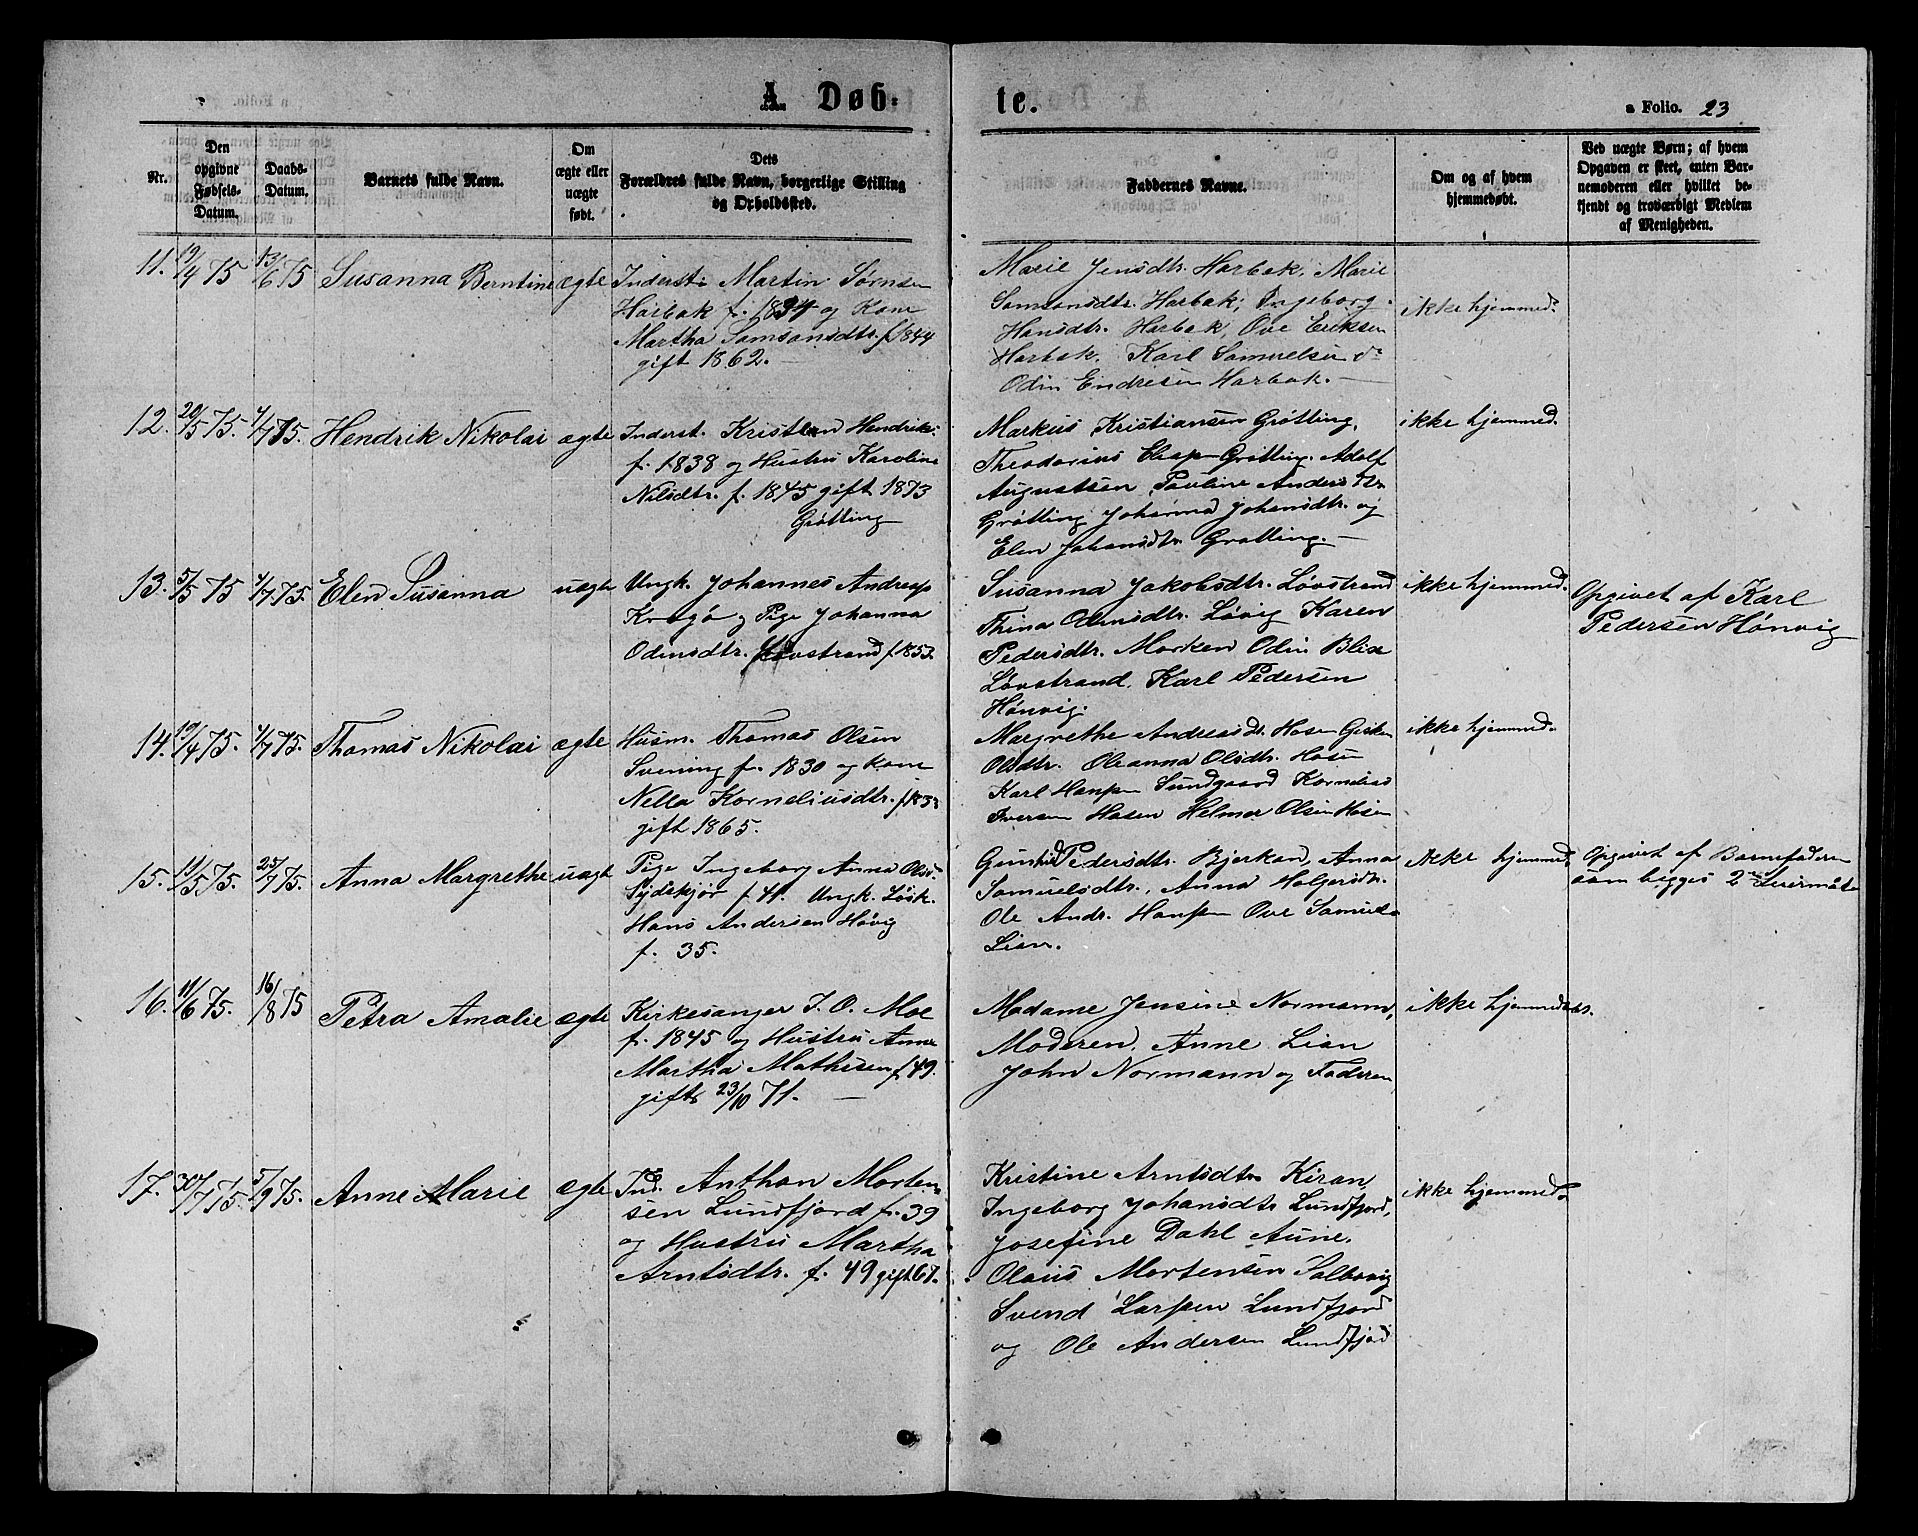 A. Døb-
te.
a Folio. 23
Nr.
Den
opgivne
Fødsels-
Datum.
Daabs-
Datum.
Barnets fulde Navn.
Om
ægte eller
uægte
født.
Dets
Forældres fulde Navn, borgerlige Stilling
og Opholdssted.
Faddernes Navne.
Om og af hvem
hjemmedøbt.
Ved uægte Børn; af hvem
Opgaven er skeet, enten Bar-
nemoderen eller hvilket be-
kjendt og troværdigt Medlem
af Menigheden.
11. 19/4 75 13/6 75 Susanna Berntine ægte
Inderst Martin Sørnsen
Harbak f. 1834 og Kone
Martha Samsonsdtr. f 1844
gift 1862.
Marie Jensdtr. Harbak, Marie
Samsonsdtr. Harbak, Ingeborg
Hansdtr. Harbak, Ove Eriksen
Harbak. Karl Samuelsen do
Odin Endresen Harbak.
ikke hjemmed.
12. 20/5 75. 4/7 75. Hendrik Nikolai ægte
Inderst. Kristen Hendriks.
f. 1838 og Hustru Karoline
Nilsdtr. f. 1845 gift 1873
Grøtting
Markus Kristiansen Grøtting,
Theodorius Grøtting. Adolf
Augustsen, Pauline Andersdtr
Grøtting Johanna Johansdtr. og
Elen Johansdtr Grøtting.
ikke hjemmed.
13. 5/5 75 4/7 75. Elen Susanna uægte
Ungk. Johannes Andreas
Kragø og Pige Johanna
Odinsdtr. Løvstrand f. 1853.
Susanna Jakobsdtr. Løvstrand
Thina Odinsdtr. Løvig Karen
Pedersdtr. Morken Odin Blix
Løvstrand. Karl Pedersen
Hønvig.
ikke hjemmed.
Opgivet af Karl
Pedersen Hønvig
14. 19/4 75. 4/7 75. Thomas Nikolai ægte
Husm. Thomas Olsen
Svening f. 1830 og Kone
Nella Korneliusdtr. f 183
gift 1865.
Margrethe Andreasdtr. Hosen
Olsdtr. Oleanna Olsdtr. Hosen
Karl Hansen Sundgaard Kornelius
Iversen Hosen Helmer Olsen Hosen
ikke hjemmed.
15. 11/5 75. 25/7 75. Anna Margrethe uægt
Pige Ingeborg Anna Olsd.
Sydskjør f. 41. Ungk. Løsk.
Hans Andersen Høvig
f. 35.
Gunhild Pedersdtr. Bjerkan, Anna
Samuelsdtr., Anna Holgersdtr.
Ole Andr. Hansen Ove Samuels
Lian.
ikke hjemmed.
Opgivet af Barnefaderen
som begges 2den Leiermåle
16. 11/6 75. 16/8 75 Petra Amalie ægte
Kirkesanger J. O. Moe
f. 1845 og Hustru Anne
Martha Mathisen f 49.
gift 23/10 71.
Madame Jensine Normann,
Moderen, Anne Lian
John Normann og Faderen
ikke hjemmedøbt.
17. 30/7 75. 5/9 75. Anne Marie ægte
Ind. Anthon Morten
sen Lundfjord f. 39
og Hustru Martha
Arntsdtr. f. 49 gift 67.
Kristine Arntsdtr Kiran,
Ingeborg Johansdtr Lundfjord,
Josefine Dahl Aune.
Olaus Mortensen Salbovig
Svend Larsen Lundfjord
og Ole Andersen Lundfjord
ikke hjemmed.